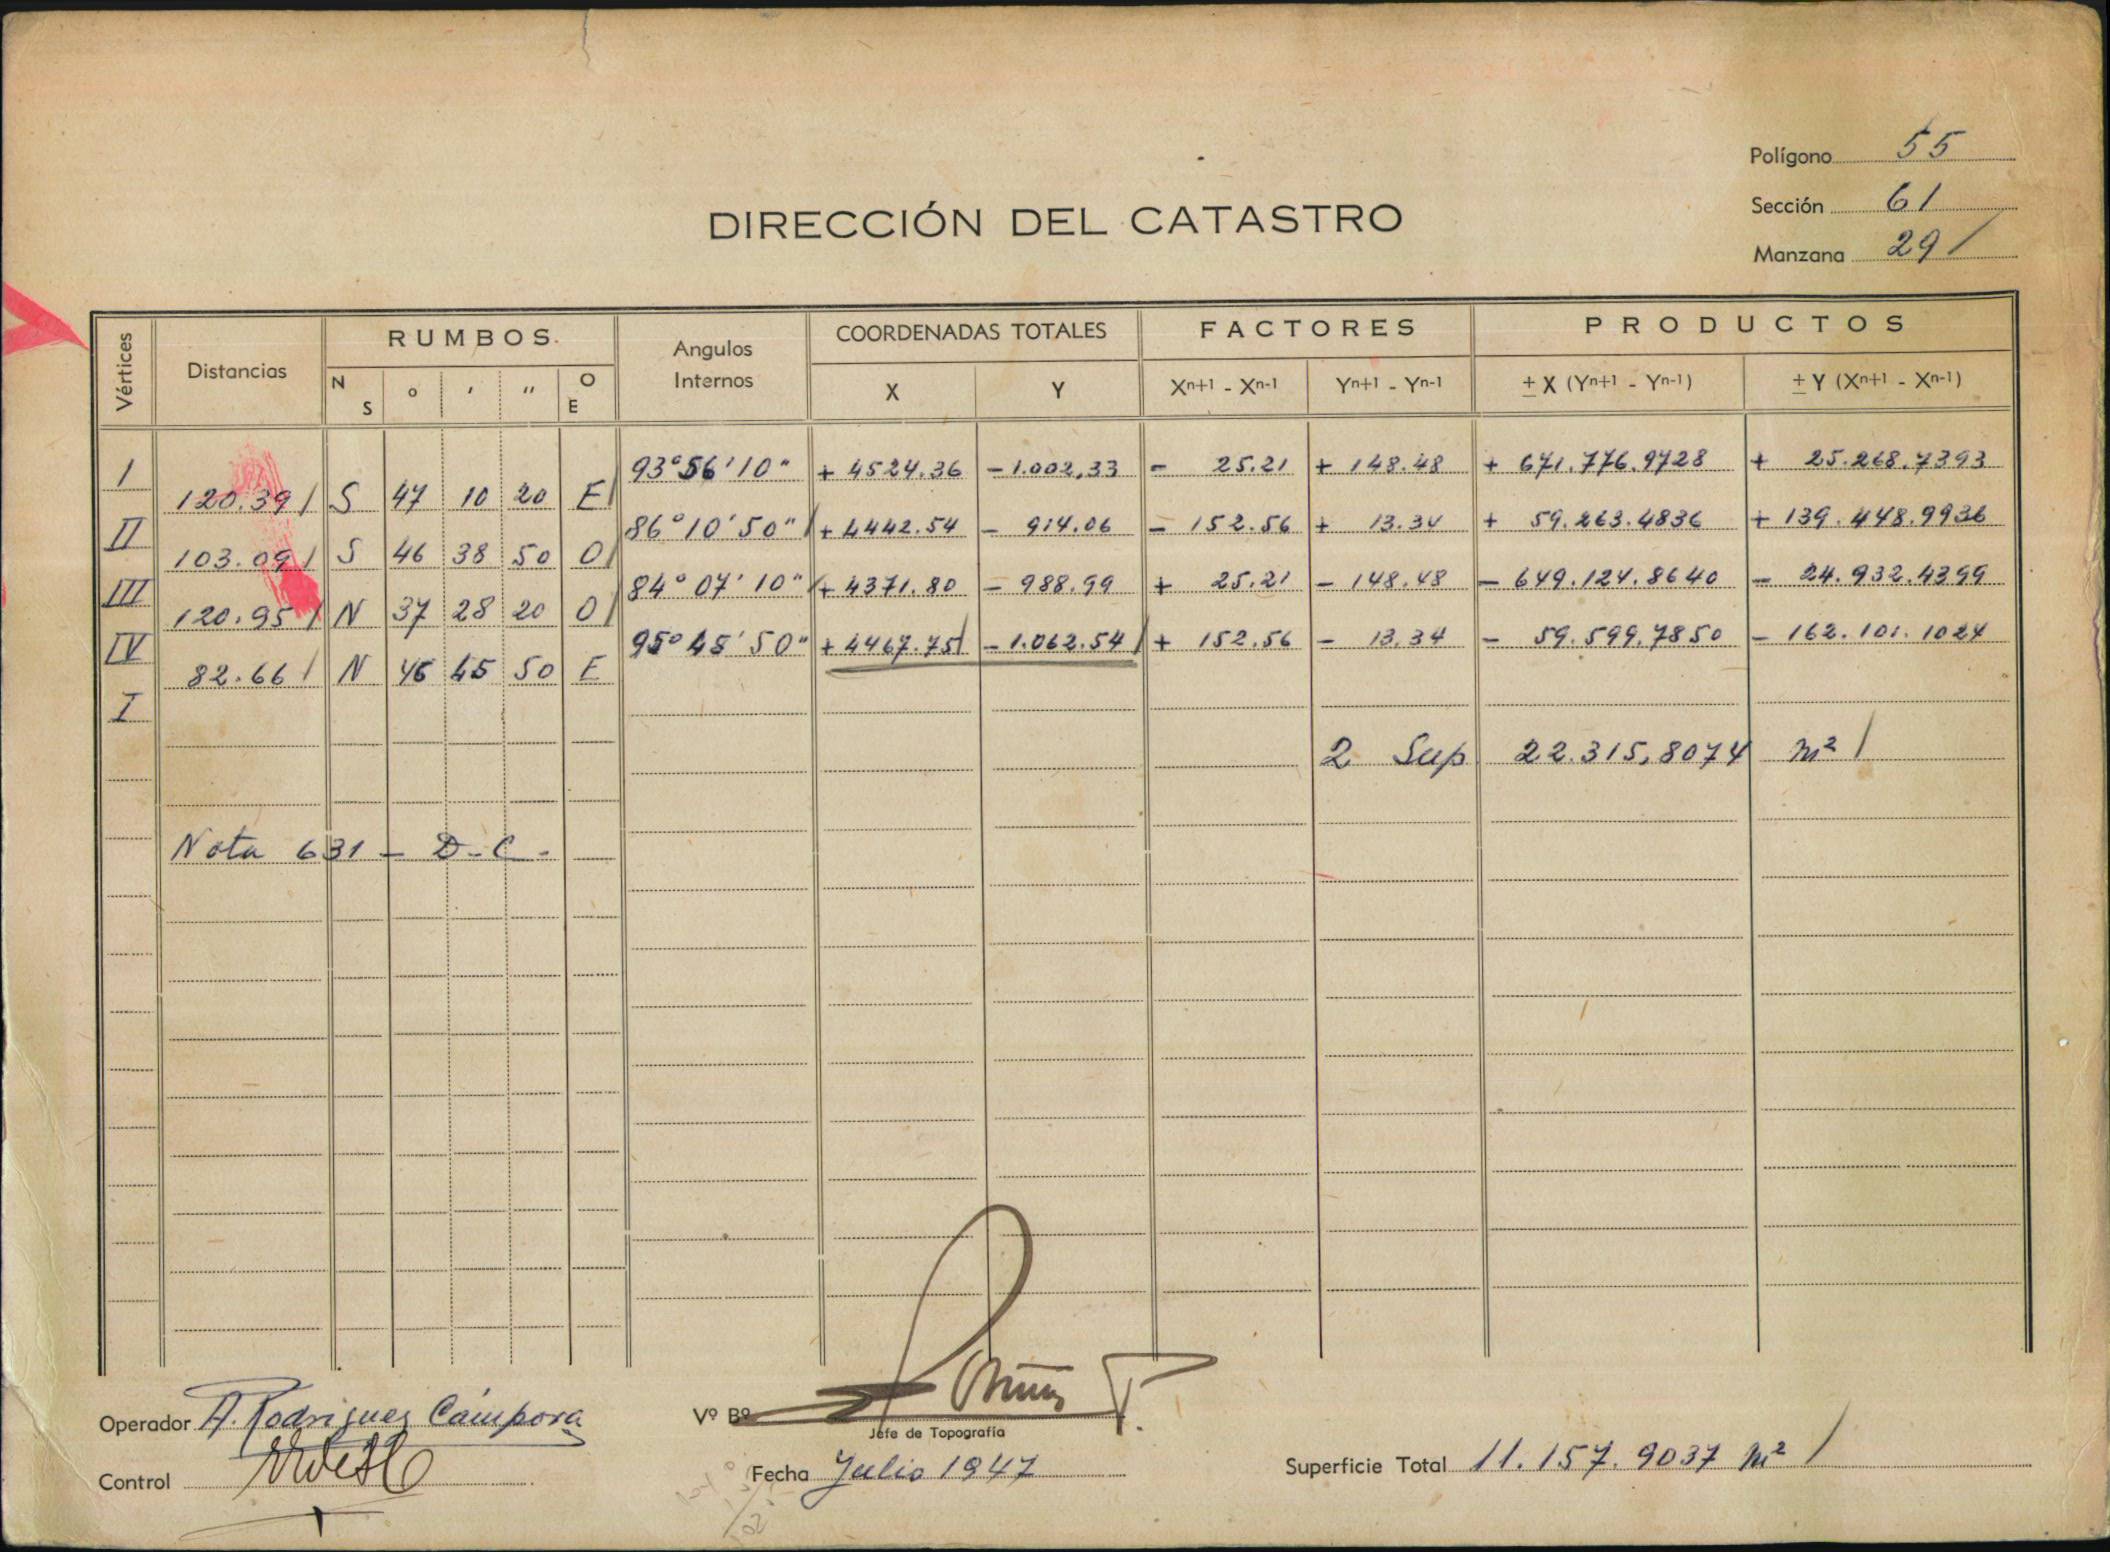 Polígono 55
Sección 61
Manzana 29 /
DIRECCIÓN DEL CATASTRO
Vértices Distancias RUMBOS. Angulos Internos COORDENADAS TOTALES FACTORES PRODUCTOS
N S ° ' " O E X Y Xn+1 - Xn-1 Yn+1 - Yn-1 ± X (Yn+1 - Yn-1) ± Y (Xn+1 - Xn-1)
I 93° 56' 10" + 4524.36 - 1.002,33 - 25.21 + 148.48 + 671.776.9728 + 25.268.7393
120.39 / S 47 10 20 E /
II 86° 10' 50" / + 4442.54 - 914.06 - 152.56 + 13.34 + 59.263.4836 + 139.448.9936
103.09 / S 46 38 50 O /
III 84° 07' 10" / + 4371.80 - 988.99 + 25.21 - 148.48 - 649.124.8640 - 24.932.4399
120.95 / N 37 28 20 O /
IV 95° 45' 50" + 4467.75 / - 1.062.54 / + 152.56 - 13.34 - 59.599.7850 - 162.101.1024
82.66 / N 46 45 50 E
I
2 Sup 22.315,8074 m² /
Nota 631 - D-C -
Operador A. Rodriguez Cámpora
Vº Bº
Jefe de Topografía
Control
Fecha Julio 1947
Superficie Total 11.157.9037 m² /